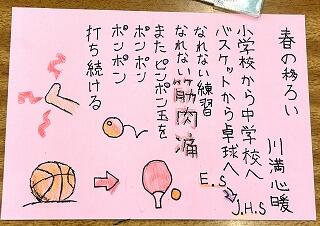 春の移ろい
川満心暖
小学校から中学校へ
バスケットから卓球へ
なれない練習
なれない筋肉痛
また ピンポン玉を
ポンポン
ポンポン
打ち続ける
E.S
J.H.S